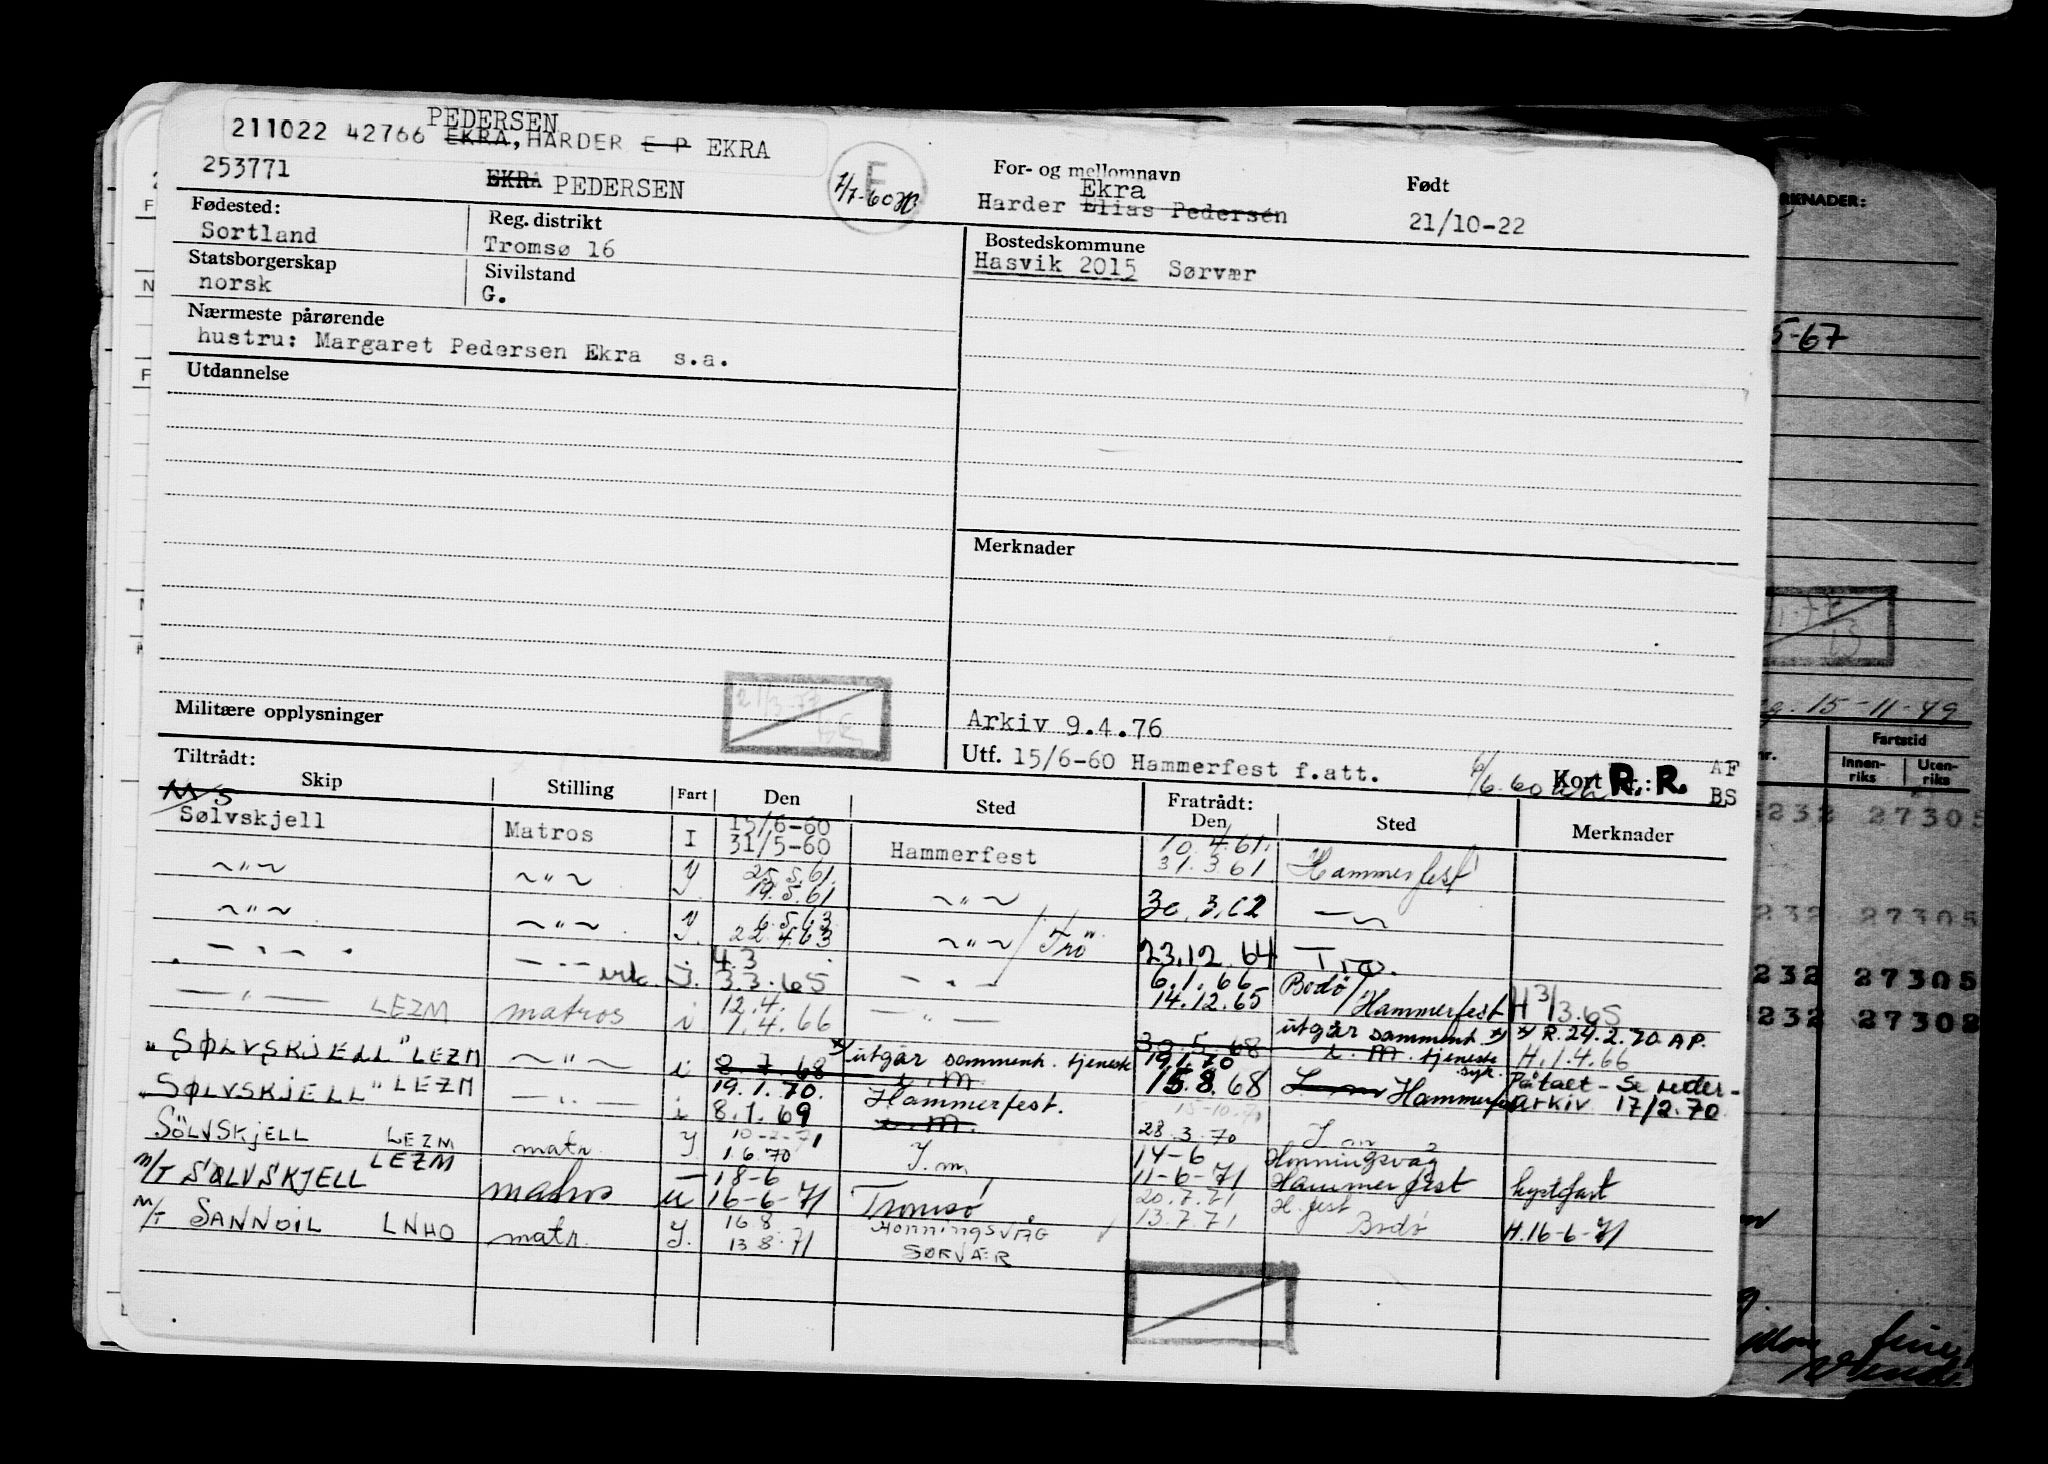 PEDERSEN
211022 42766 EKRA, HARDER E P EKRA
253771
EKRA PEDERSEN
E
7/7-60
For- og mellomnavn
Ekra
Harder Elias Pedersen
Født
21/10-22
Fødested:
Sortland
Reg. distrikt
Tromsø 16
Bostedskommune
Hasvik 2015 Sørvær
Statsborgerskap
norsk
Sivilstand
G.
Nærmeste pårørende
hustru: Margaret Pedersen Ekra s.a.
Utdannelse
Merknader
Militære opplysninger
21/3-77
Arkiv 9.4.76
Utf. 15/6-60 Hammerfest f.att.
Kort nr.: R.R.
AF
BS
Tiltrådt:
Skip Stilling Fart Den Sted Fratrådt: Den Sted Merknader
M/S
Sølvskjell Matros I 15/6-60 31/5-60 Hammerfest 10.4.61. 31.3.61 Hammerfest
~"~ ~"~ I. 25.5.61. 19.5.61 ~"~ 30.3.62
~"~ ~"~ I. 6.5.63 22.4.63 ~"~ / Trø 23.12.64 Trø.
— " — — " — I. 4.3 3.3.65 — " — 6.1.66 14.12.65 Bodø / Hammerfest H 3/3.65
— " — LEZM matros i 12.4. 1.4.66 — " — 30.5.68 19.1.70 utgår sammenh. tjeneste i.m. x) R. 24.2.70 AP. H. 1.4.66
"SØLVSKJELL" LEZM ~"~ i 8.7.68 19.1.70. x) utgår sammenh. tjeneste i.m Hammerfest. 15.8.68 i.m Hammerfest syk. Påtalt - Se rederarkiv 17/2.70
"SØLVSKJELL" LEZM — " — i 8.1.69 i.m.
SÖLVSKJELL LEZM matr. I. 10-2-71 1.6.70 I.m. 28.3.70 I.m
M/T SØLVSKJELL LEZM matros u 18-6 16-6-71 Tromsø 14-6 11-6-71 Honningsvåg Hammerfest kystfart
M/T SANNOIL LNHO matr. I. 16.8 13.8.71 HONNINGSVÅG SØRVÆR 20.7.71 13.7.71 H.fest Bodø H.16-6-71
RKNADER:
5-67
15-11-49
nr.
Fartstid
Innen-riks
Uten-riks
232 27305
232 27305
232 27305
232 27308